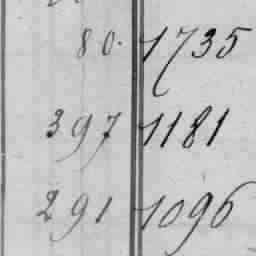 80. 1735
397 1181
291 1096